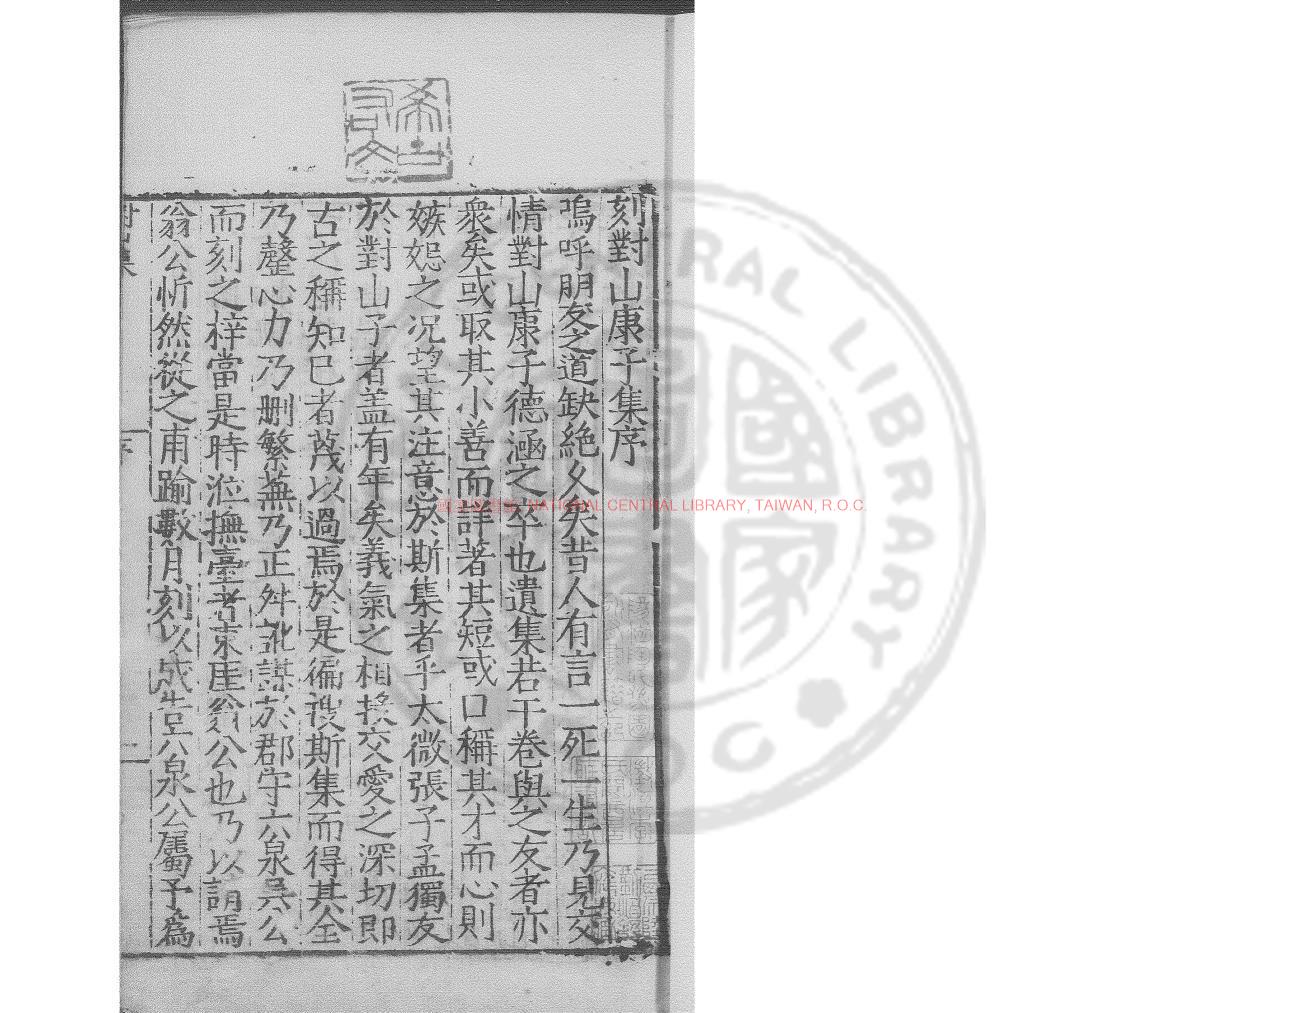 刻對山康子集序
嗚呼朋友之道缺絶久矣昔人有言一死一生乃見交
情對山康子德涵之卒也遺集若干卷與之友者亦
衆矣或取其小善而詳著其短或口稱其才而心則
嫉怨之况望其注意於斯集者乎太微張子孟獨友
於對山子者盖有年矣義氣之相投交愛之深切即
古之稱知巳者蔑以過焉於是徧搜斯集而得其全
乃罄心力乃删繁蕪乃正舛訛謀於郡守六泉吳公
而刻之梓當是時涖撫臺者東厓翁公也乃以請焉
翁公忻然從之甫踰數月刻以成告六泉公屬予爲
對山集
序
一
國家圖書館 NATIONAL CENTRAL LIBRARY, TAIWAN, R.O.C.